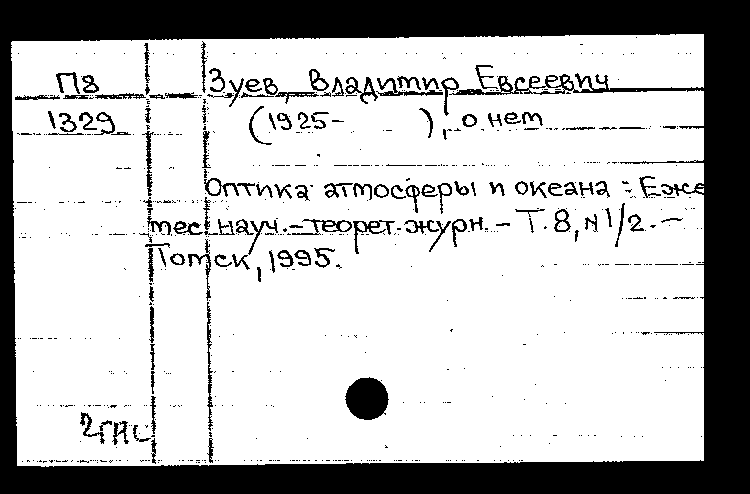 П8 Зуев, Владимир Евсеевич
1329 (1925- ), о нем
Оптика атмосферы и океана : Еже
мес. науч.-теорет. журн. - Т. 8, N 1/2. -
Томск, 1995.